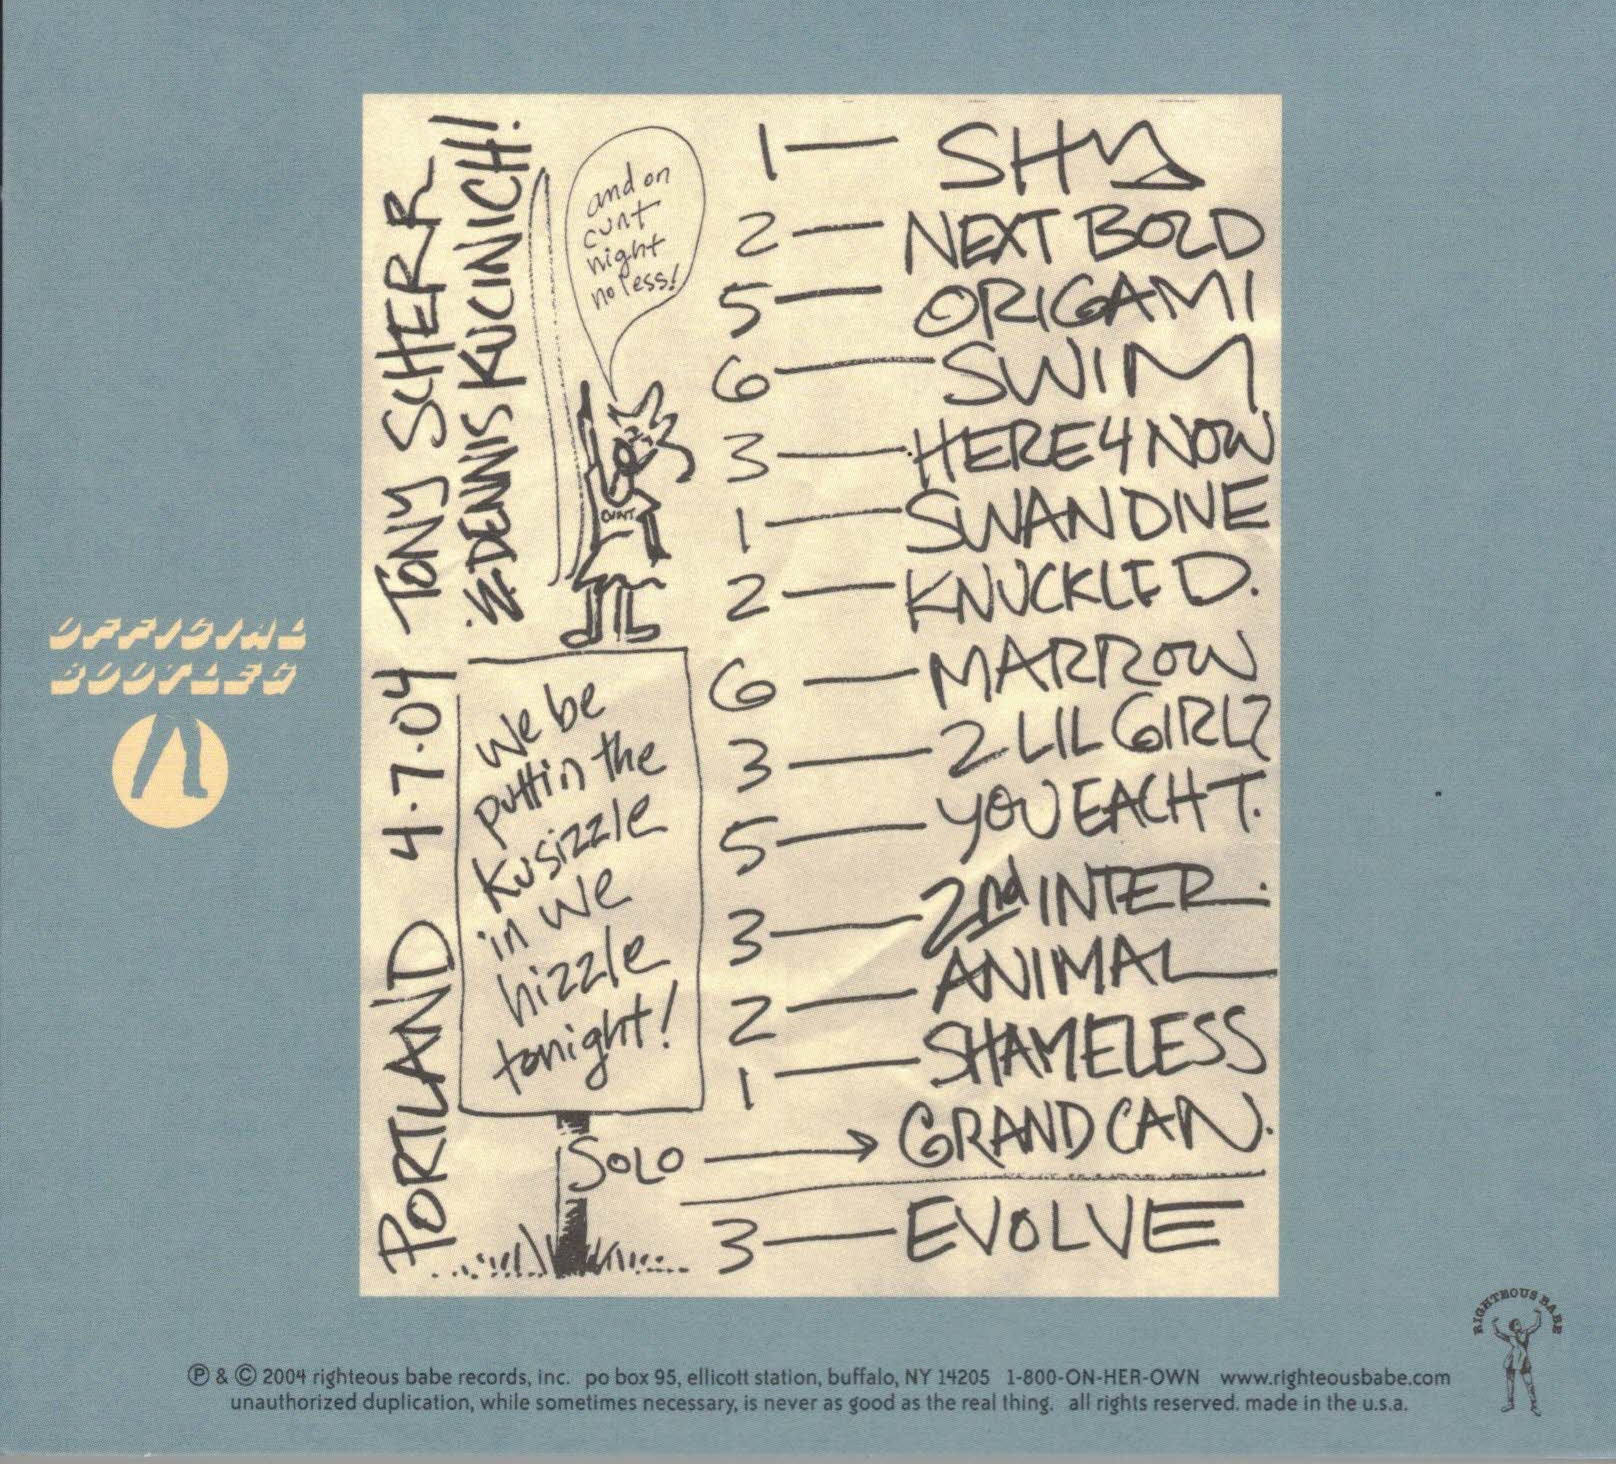 PORTLAND 4.7.04 TONY SCHERR
& DENNIS KUCINICH!
and on
cunt
night
no less!
CUNT
We be
puttin the
Kusizzle
in we
hizzle
tonight!
1 — SHY
2 — NEXT BOLD
5 — ORIGAMI
6 — SWIM
3 — HERE 4 NOW
1 — SWANDIVE
2 — KNUCKLE D.
6 — MARROW
3 — 2 LIL GIRLZ
5 — YOU EACH T.
3 — 2nd INTER.
2 — ANIMAL
1 — SHAMELESS
SOLO → GRAND CAN.
3 — EVOLVE
OFFICIAL
BOOTLEG
RIGHTEOUS BABE
℗ & © 2004 righteous babe records, inc. po box 95, ellicott station, buffalo, NY 14205 1-800-ON-HER-OWN www.righteousbabe.com
unauthorized duplication, while sometimes necessary, is never as good as the real thing. all rights reserved. made in the u.s.a.